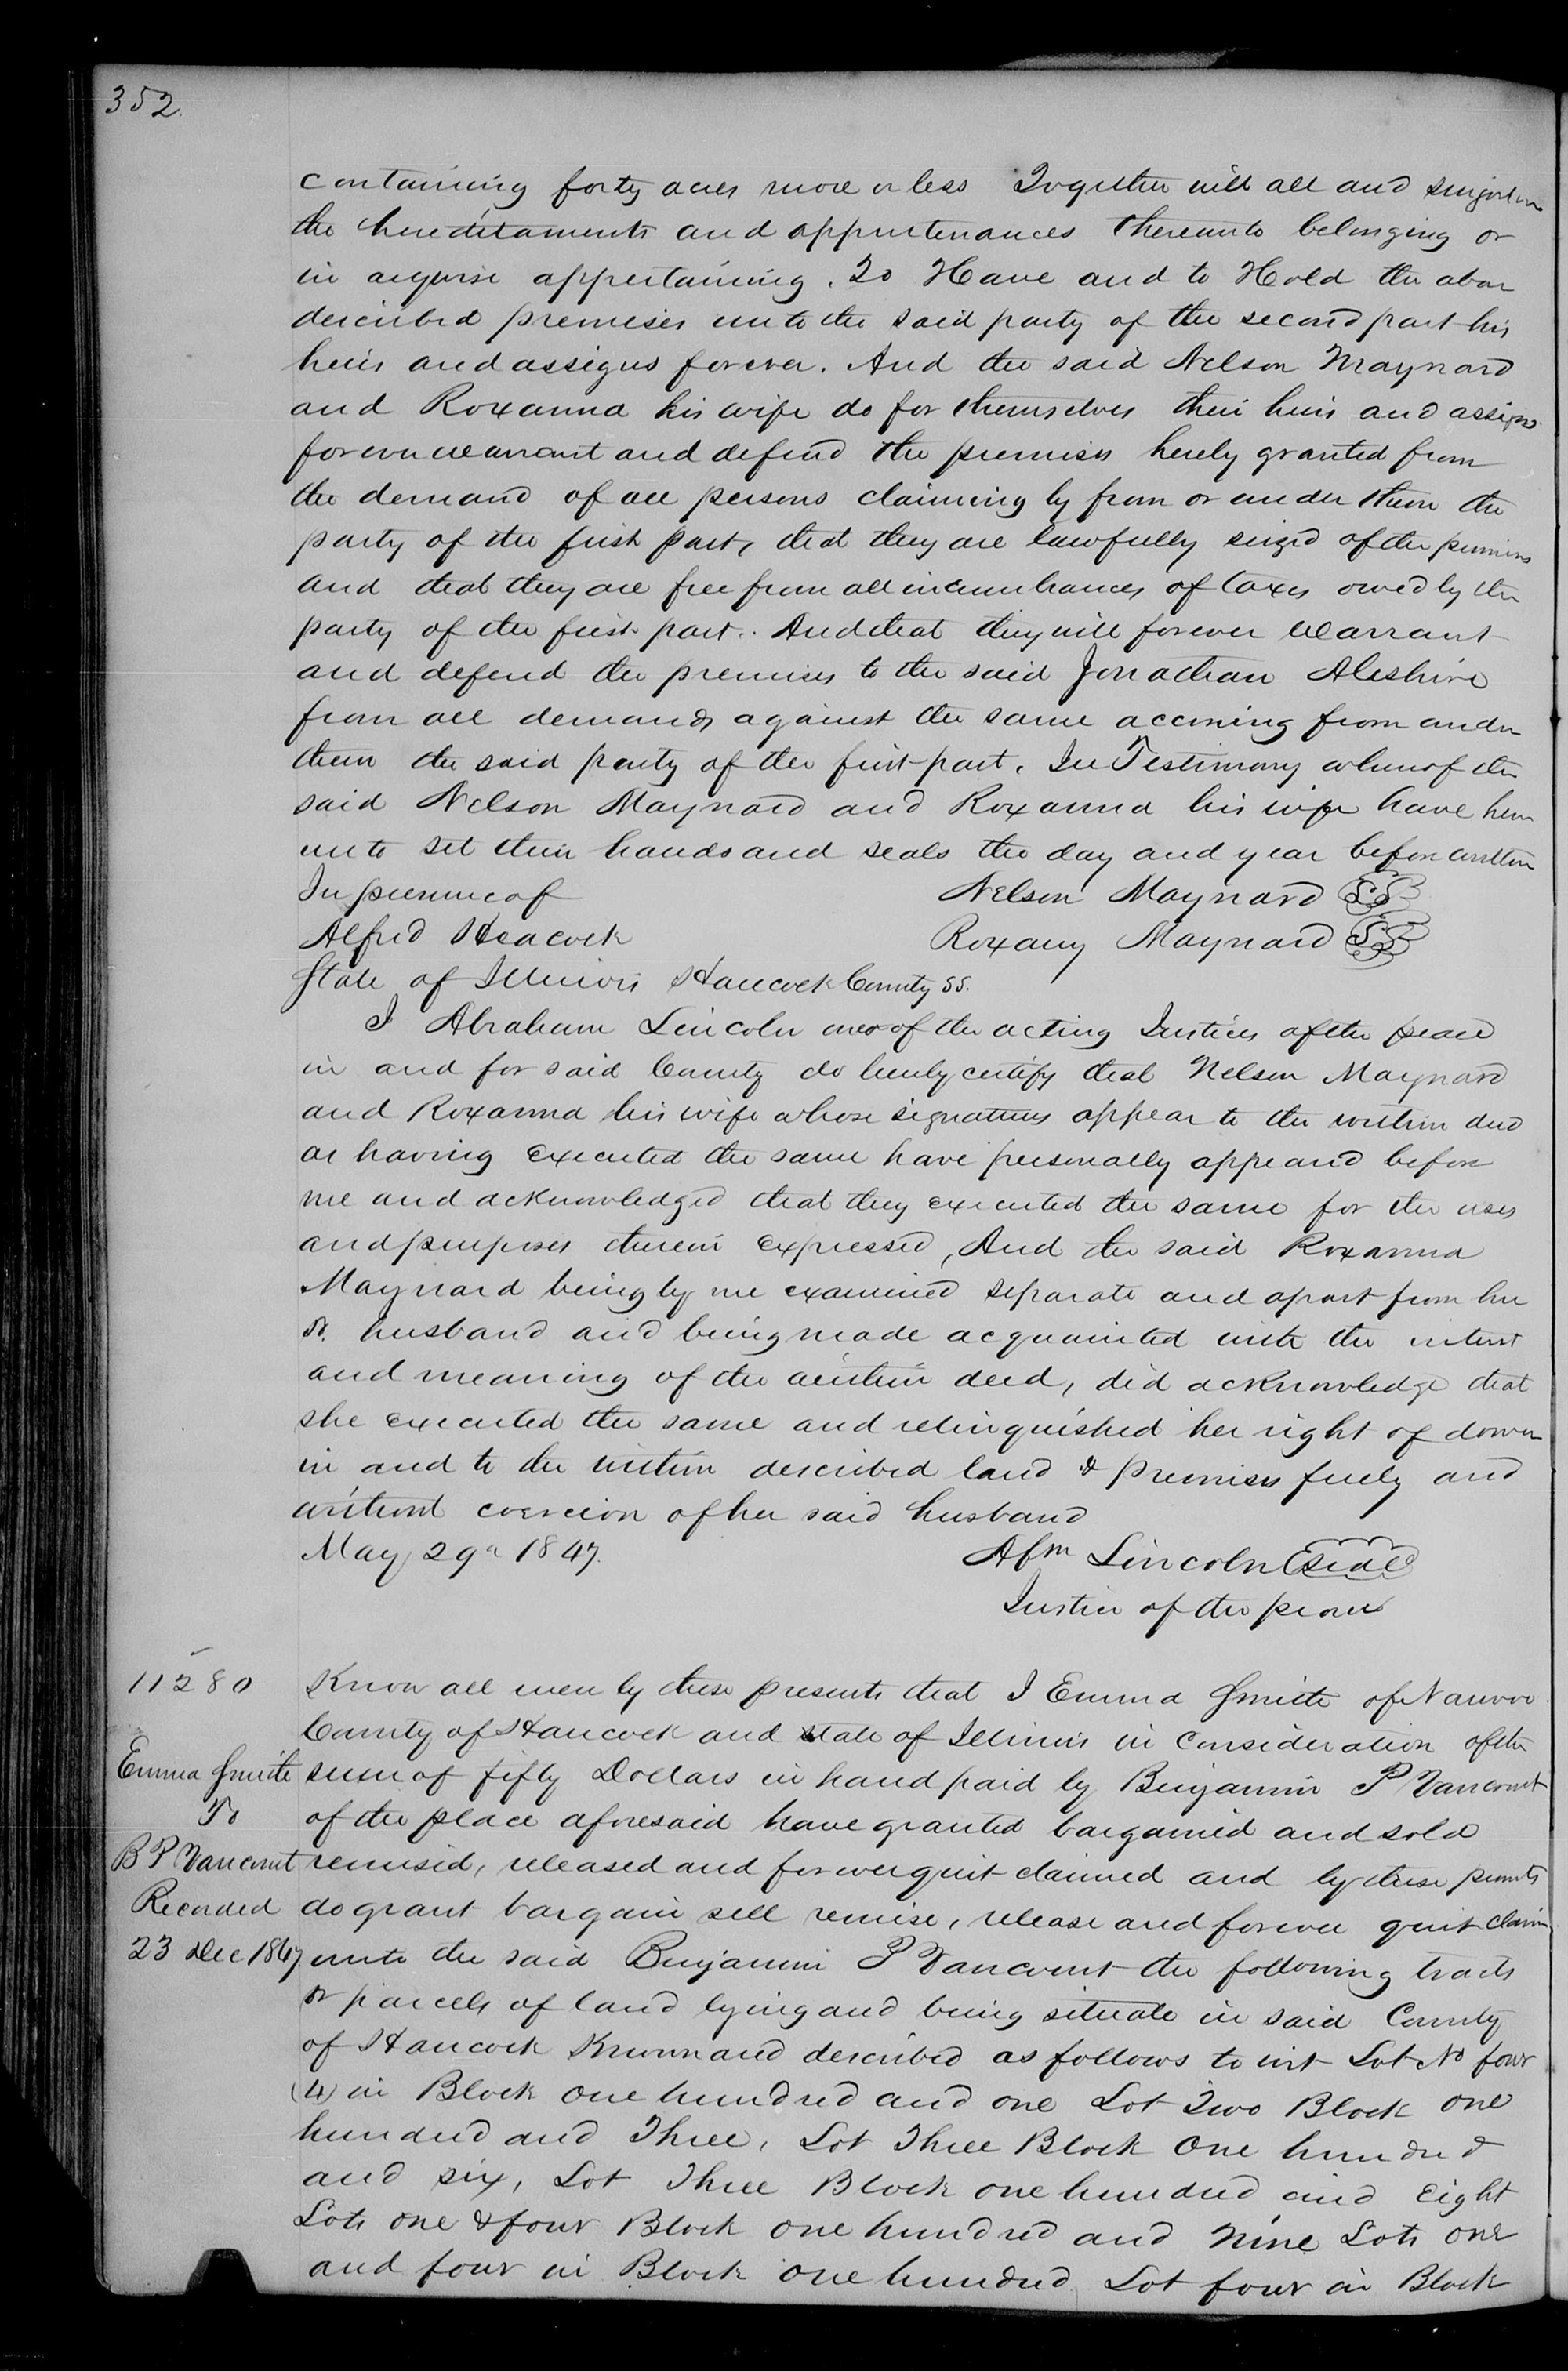 352
containing forty acres more or less Together with all and singular
the hereditaments and appurtenances thereunto belonging or
in anywise appertaining. To Have and to Hold the above
described premises unto the said party of the second part his
heirs and assigns forever. And the said Nelson Maynard
and Roxanna his wife do for themselves their heirs and assigns
forever warrant and defend the premises hereby granted from
the demand of all persons claiming by from or under them the
party of the first part, that they are lawfully seized of the premises
and that they are free from all incumbrances of taxes owed by the
party of the first part. And that they will forever Warrant
and defend the premises to the said Jonathan Aleshire
from all demands against the same accruing from under
them the said party of the first part. In Testimony whereof the
said Nelson Maynard and Roxanna his wife have here
unto set their hands and seals the day and year before written
In presence of Nelson Maynard SS
Alfred Heacock Roxany Maynard SS
State of Illinois Hancock County SS.
I Abraham Lincoln one of the acting Justices of the peace
in and for said County do hereby certify that Nelson Maynard
and Roxanna his wife whose signatures appear to the within deed
as having executed the same have personally appeared before
me and acknowledged that they executed the same for the uses
and purposes therein expressed, And the said Roxanna
Maynard being by me examined separate and apart from her
sd. husband and being made acquainted with the intent
and meaning of the within deed, did acknowledge that
she executed the same and relinquished her right of dower
in and to the within described land & premises freely and
without coercion of her said husband
May 29 1847. Abm Lincoln Seal
Justice of the peace
11280
Emma Smith
To
B P Vancourt
Recorded
23 Dec 1847
Know all men by these presents that I Emma Smith of Nauvoo
County of Hancock and State of Illinois in Consideration of the
sum of fifty Dollars in hand paid by Benjamin P Vancourt
of the place aforesaid have granted bargained and sold
remised, released and forever quit claimed and by these presents
do grant bargain sell remise, release and forever quit claim
unto the said Benjamin P Vancourt the following tracts
or parcels of land lying and being situate in said County
of Hancock Known and described as follows to wit Lot No four
(4) in Block one hundred and one Lot Two Block one
hundred and Three, Lot Three Block One hundred
and six, Lot Three Block one hundred and Eight
Lots one & four Block one hundred and Nine Lots one
and four in Block one hundred Lot four in Block